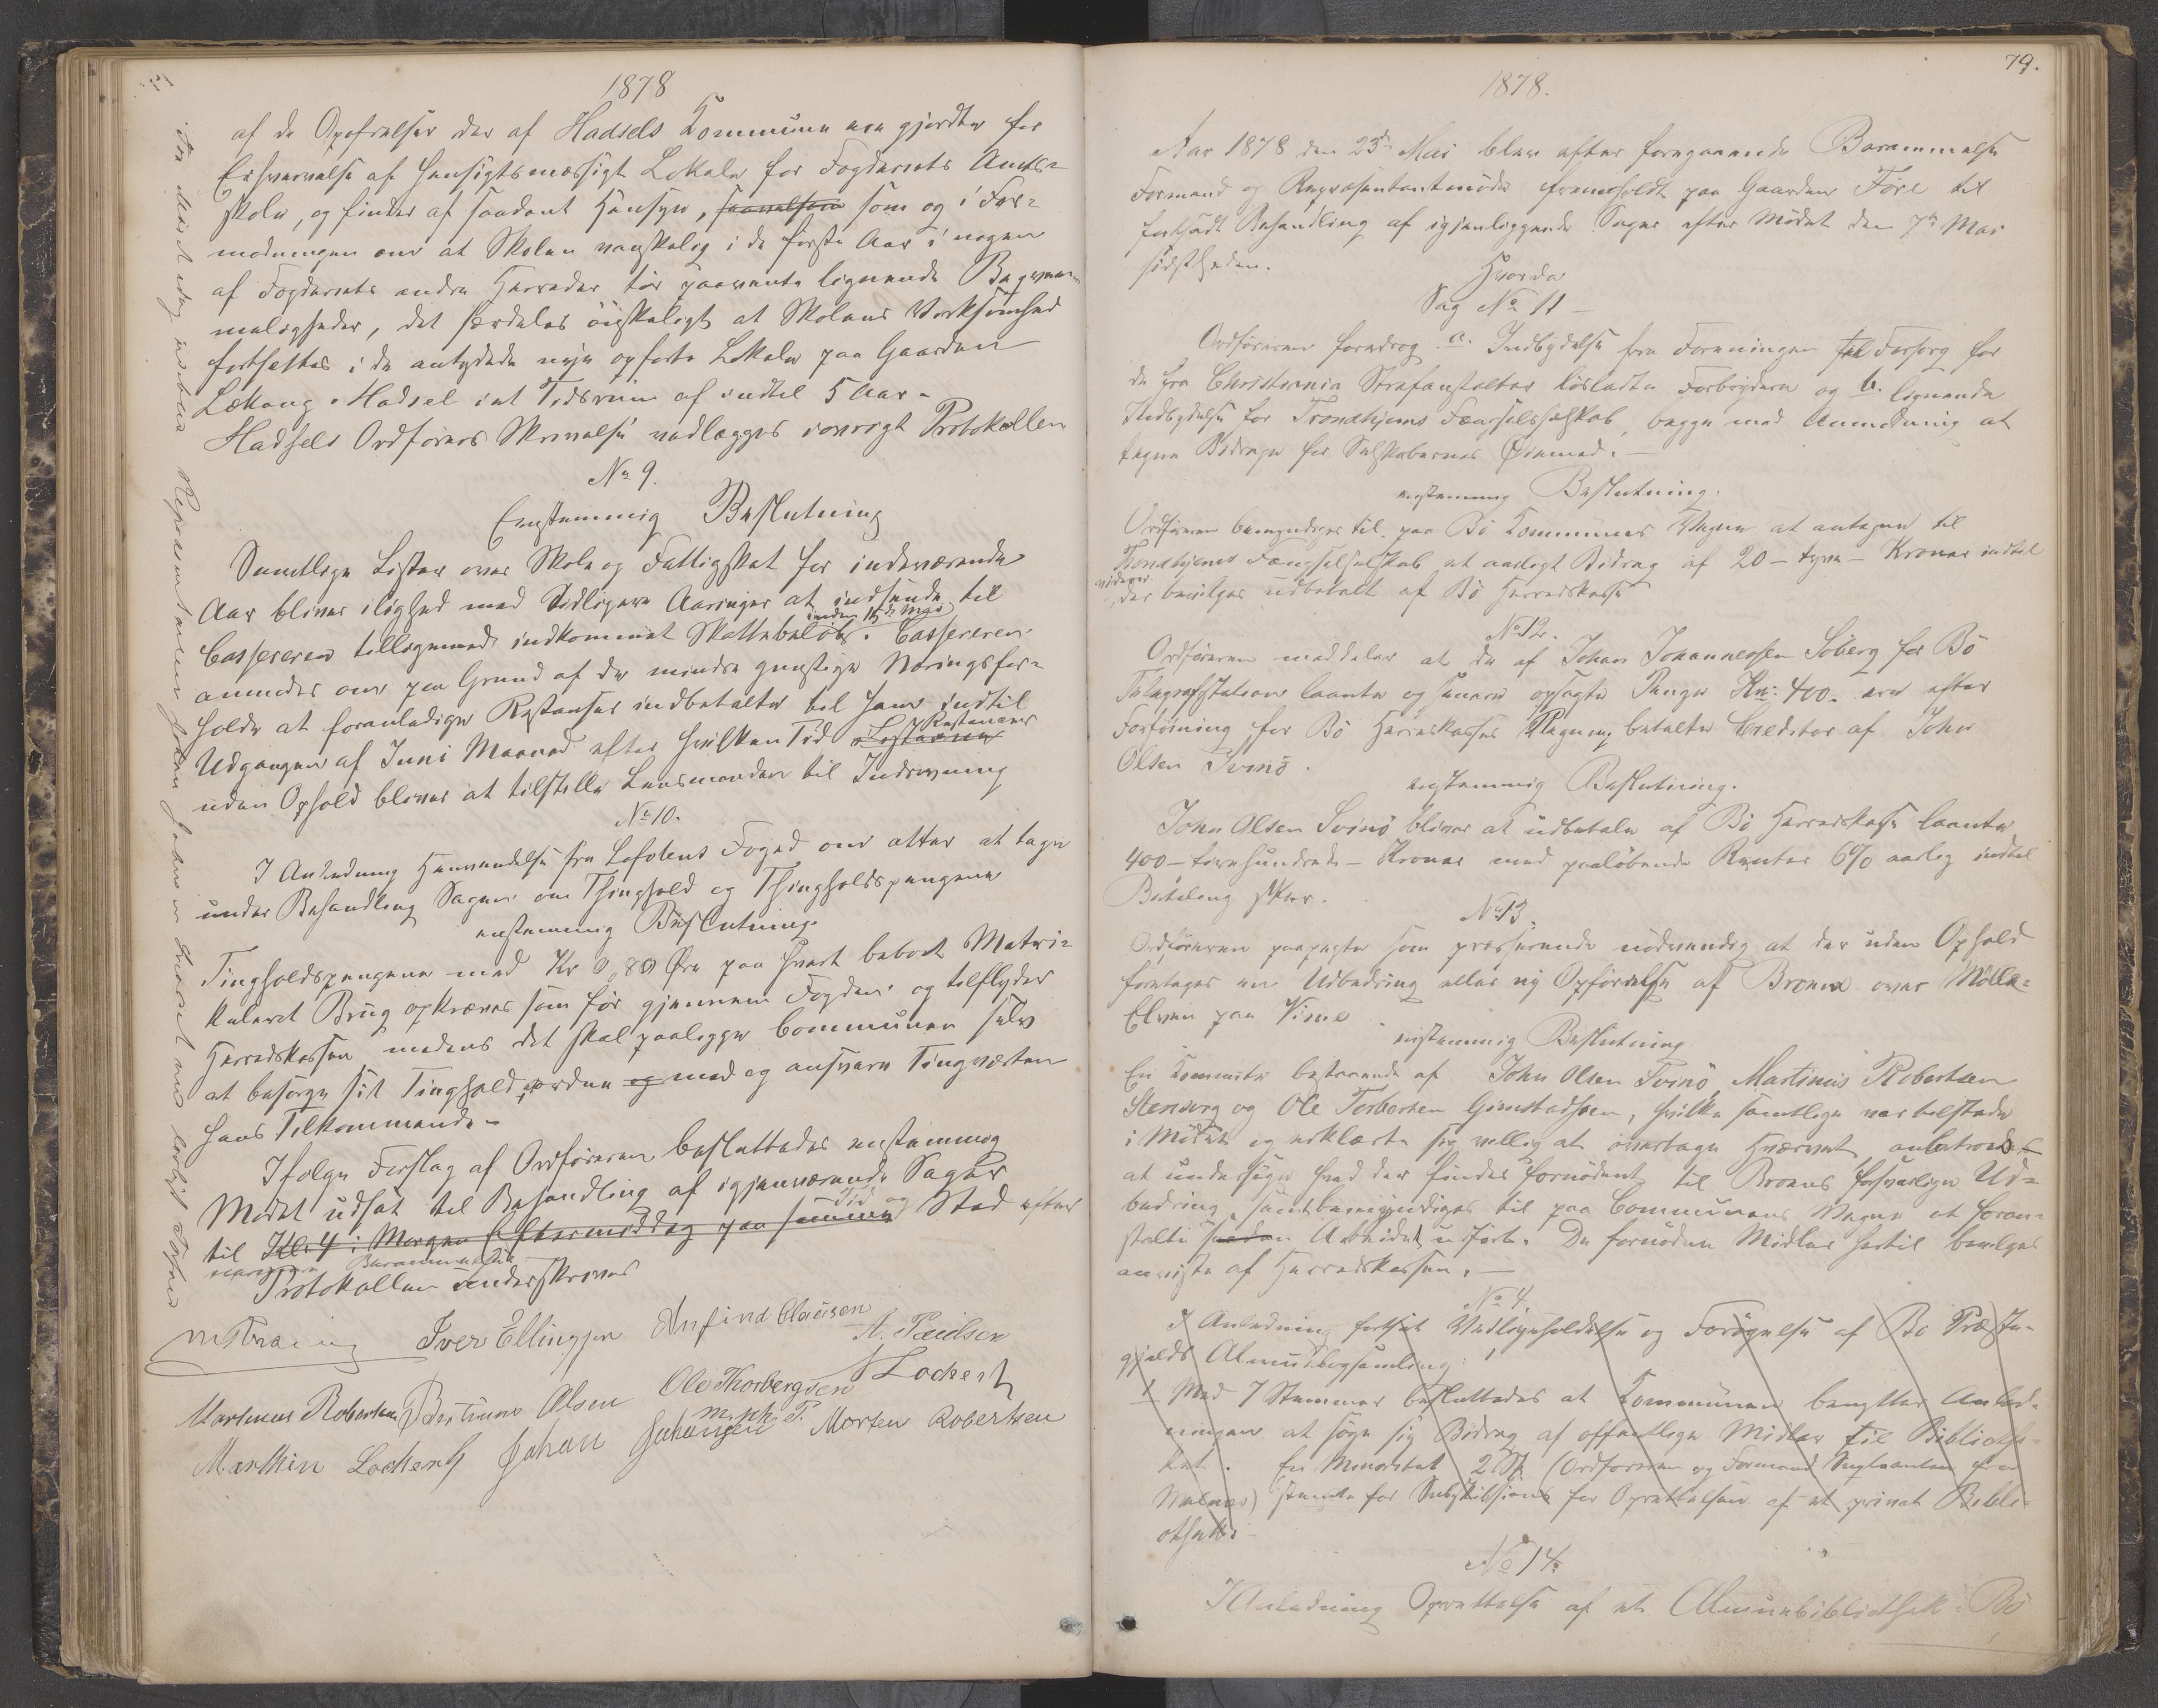 1878
af de Opofrelser der af Hadsels Kommune ere gjordte for
Erhvervelse af hensigtsmæssigt Lokale for Fogderiets Amts-
skole, og finder af saadant Hensyn, som og i For-
modningen om at Skolen vanskelig i de første Aar i nogen
af Fogderiets andre Herreder tør paavente lignende Beqvem-
meligheder, det særdeles ønskeligt at Skolens Virksomhed
fortsættes i de antydede nye opførte Lokaler paa Gaarden
Hadsel i et Tidsrum af indtil 5 Aar.
Hadsels Ordførers Skrivelse vedlægges iøvrigt Protokollen
No 9.
Eenstemmig Beslutning
Samtlige Lister over Skole og Fattigskat for indeværende
Aar bliver i lighed med tidligere Aaringer at indsende til
inden 15de Mai
Cassereren tilligemed indkommet Skattebeløb. Cassereren
anmodes om paa Grund af de mindre gunstige Næringsfor-
holde at foranledige Restanser indbetalte til ham indtil
Udgangen af Juni Maaned efter hvilken Tid Restancer
uden Ophold bliver at tilstille Lensmanden til Inddrivning
No 10.
I Anledning Henvendelse fra Lofotens Foged om atter at tage
under Behandling Sagen om Thinghold og Thingholdspengene
enstemmig Beslutning.
Tingholdspengene med Kr 0,80 Øre paa hvert beboet Matri-
kuleret Brug opkræves som før gjennem Fogden og tilflyder
Herredskassen medens det skal paaligge Communen selv
at besørge sit Tinghold, ordne og med og ansvare Tingværten
hans Tilkommende.
Ifølge Forslag af Ordføreren besluttedes enstemmig
Mødet udsat til Behandling af igjenværende Sager
til Kl. 4 i Morgen Eftermiddag paa samme Tid og Sted efter
nærmere Berammelse
Protokollen underskrives
Iver Ellingsen Anfind Clausen A. Paulsen
Martinus Robertsen Bertinus Olsen Ole Thorbergsen Lockert
m. p. P.
Marthin Lockert Johan Johansen Morten Robertsen
79.
1878.
Aar 1878 den 23de Mai blev efter foregaaende Berammelse
Formand og Repræsentantmøde fremholdt paa Gaarden Føre til
fortsadt Behandling af igjenliggende Sager efter Mødet den 7de Mai
sidstleden.
Hvorda
Sag No 11
Ordføreren foredrog a. Indbydelse fra Foreningen til Forsorg for
de fra Christiania Strafanstalter løsladte Forbrydere og b. lignende
Indbydelse for Trondhjems Fængselsselskab, begge med Anmodning at
tegne Bidrage for Selskabernes Øiemed.
enstemmig Beslutning.
Ordføreren bemyndiges til paa Bø Kommunes Vegne at antegne til
Trondhjems Fængselsselskab et aarligt Bidrag af 20 – tyve – Kroner indtil
videre
der bevilges udbetalt af Bø Herredskasse
No 12.
Ordføreren meddeler at de af Johan Johannessen Søberg for Bø
Telegrafstation laante og senere opsagte Penge Kr: 400. ere efter
Forføining for Bø Herredskasses Regning betalte Creditor af John
Olsen Svinø.
enstemmig Beslutning.
John Olsen Svinø bliver at udbetale af Bø Herredskasse laante
400 – firehundrede – Kroner med paaløbende Renter 6% aarlig indtil
Betaling skeer.
No 13.
Ordføreren paapegte som presserende nødvendig at der uden Ophold
foretages en Udbedring eller ny Opførelse af Broen over Mølle-
Elven paa Vinje
enstemmig Beslutning
En Komite bestaaende af John Olsen Svinø, Martinus Robertsen
Steensvog og Ole Torbersen Gimstadhoen, hvilke samtlige var tilstede
i Mødet og erklærte sig villig at overtage Hvervet, anbetroedes
at undersøge hvad der findes fornødent til Broens forsvarlige Ud-
bedring, samt bemyndiges til paa Communens Vegne at foran-
stalte Arbeidet udført. De fornødne Midler hertil bevilges
anviste af Herredskassen.
No 4.
I Anledning fortsat Vedligeholdelse og Forøgelse af Bø Præste-
gjelds Almuebogsamling:
Med 7 Stemmer besluttedes at Kommunen benytter Anled-
ningen at søge sig Bidrag af offentlige Midler til Bibliothe-
ket. En Minoritet 2 St (Ordføreren og Formand
) stemte for Subskribtion for Oprettelsen af et privat Bibli-
othek
No 14.
I Anledning Oprettelse af et Almuebibliothek i Bø